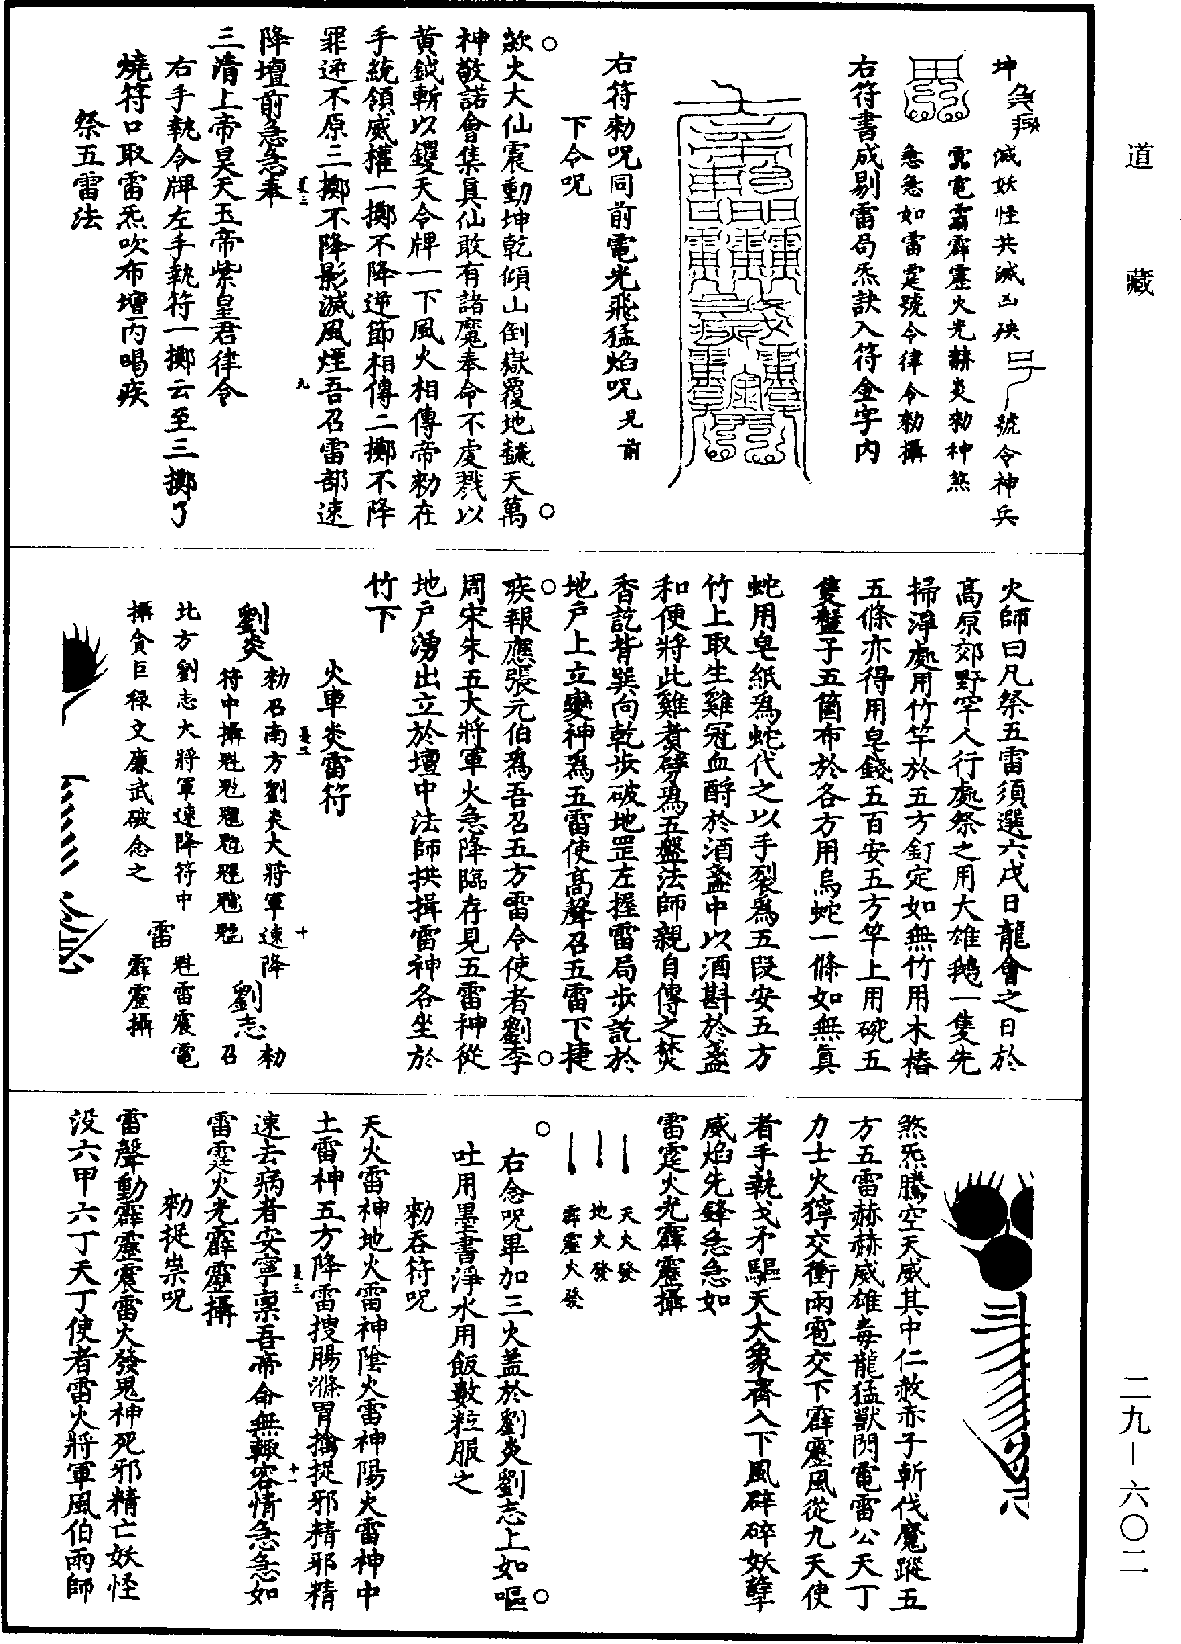 道藏
二九—六〇二
坤
滅妖怪共滅凶殃
號令神兵
雷電霹靂火光赫炎勑神煞
急急如雷霆號令律令勑攝
右符書成剔雷局炁訣入符金字内
右符勑呪同前電光飛猛焰呪見前
下令呪
歘火大仙震動坤乾傾山倒嶽覆地飜天萬
神敬諾會集真仙敢有諸魔奉命不虔戮以
黃鉞斬以钁天令牌一下風火相傳帝勑在
手統領威權一擲不降逆節相傳二擲不降
罪逆不原三擲不降影滅風煙吾召雷部速
降壇前急急奉
三清上帝昊天玉帝紫皇君律令
右手執令牌左手執符一擲云至三擲了
燒符口取雷炁吹布壇内喝疾
祭五雷法
火師曰凡祭五雷須選六戌日龍會之日於
高原郊野罕人行處祭之用大雄鵝一隻先
掃淨處用竹竿於五方釘定如無竹用木樁
五條亦得用皂錢五百安五方竿上用碗五
隻盤子五箇布於各方用烏蛇一條如無真
蛇用皂紙為蛇代之以手裂為五段安五方
竹上取生雞冠血酹於酒盞中以酒斟於盞
和便將此雞煮劈為五盤法師親自傳之焚
香訖背巽向乾步破地罡左握雷局步訖於
地戶上立變神為五雷使高聲召五雷下捷
疾報應張元伯為吾召五方雷令使者劉李
周宋朱五大將軍火急降臨存見五雷神從
地戶湧出立於壇中法師拱揖雷神各坐於
竹下
火車炎雷符
劉炎
勑召南方劉炎大將軍速降
符中攝
劉志
勑召
北方劉志大將軍速降符中
雷
魁雷震電
攝貪巨祿文廉武破念之
霹靂攝
煞炁騰空天威其中仁赦赤子斬伐魔蹤五
方五雷赫赫威雄毒龍猛獸閃電雷公天丁
力士火獰交衝雨雹交下霹靂風從九天使
者手執戈矛驅天大象齊入下風碎碎妖孽
威焰先鋒急急如
雷霆火光霹靂攝
天火發
地火發
霹靂大發
右念呪畢加三火蓋於劉炎劉志上如嘔
吐用墨書淨水用飯數粒服之
勑吞符呪
天火雷神地火雷神陰火雷神陽火雷神中
土雷神五方降雷搜腸滌胃擒捉邪精邪精
速去病者安寧稟吾帝命無輙容情急急如
雷霆火光霹靂攝
勑捉祟呪
雷聲動霹靂震雷火發鬼神死邪精亡妖怪
没六甲六丁天丁使者雷火將軍風伯雨師